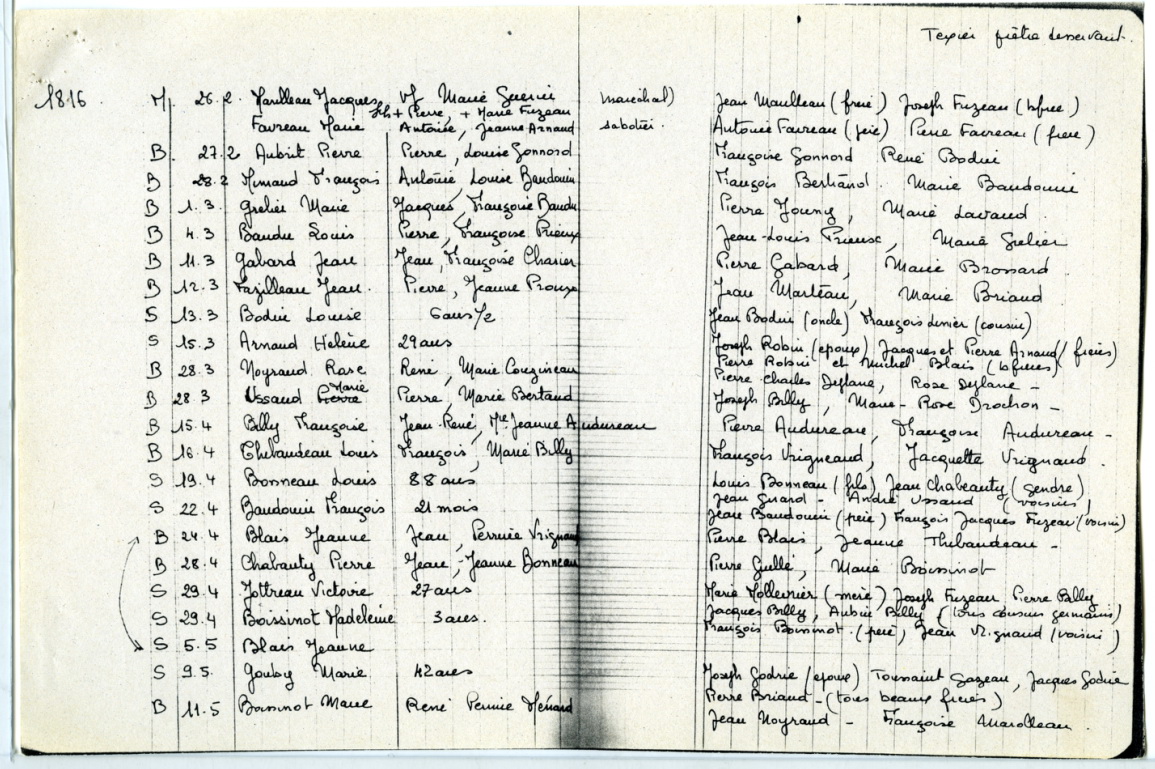 Texier prêtre desservant.
1816 M 26.2 Marilleau Jacques Vf Marie Guerin maréchal Jean Maulleau (frere) Joseph Fuzeau (bfrere)
fils + Pierre, + Marie Fuzeau
Favreau Marie Antoine, Jeanne Arnaud sabotier. Antoine Favreau (père) Pierre Favreau (frere)
B. 27.2 Aubrit Pierre Pierre, Louise Gonnord Françoise Gonnord René Bodin
B 28.2 François Antoine, Louise Baudouin François Bertrand. Marie Baudouin
B 1.3 Grelier Marie Jacques, Françoise Baudu Pierre Jouny, Marie Lavaud.
B 4.3 Baudu Louis Pierre, Françoise Prieux Jean-Louis Prieux, Marie Grelier
B 11.3 Gabard Jean Jean, Françoise Charier Pierre Gabard, Marie Brossard
B 12.3 Fazilleau Jean. Pierre, Jeanne Proux Jean Marteau, Marie Briand
S 13.3 Bodin Louise 6 ans 1/2 Jean Bodin (oncle) François (cousin)
S 15.3 Arnaud Hélène 29 ans Joseph Robin (epoux) Jacques et Pierre Arnaud (frères)
Pierre Robin et Michel Blais (bfreres)
B 28.3 Noyraud Rose René, Marie Couzineau Pierre-Charles Dylane, Rose Dylane -
B 28.3 Ussaud Pierre Marie Pierre, Marie Bertaud Joseph Billy, Marie-Rose Drochon -
B 15.4 Billy Françoise Jean-René, Me Jeanne Audureau Pierre Audureau, Françoise Audureau -
B 16.4 Thibaudeau Louis François, Marie Billy François Vrigneaud, Jacquette Vrignaud.
S 19.4 Bonneau Louis 88 ans Louis Bonneau (fils) Jean Chabeauty (gendre)
Jean Guard - André Ussaud (voisins)
S 22.4 Baudouin François 21 mois Jean Baudouin (père) François Jacques Fuzeau (voisin)
B 24.4 Blais Jeanne Jean, Perrine Vrignaud Pierre Blais, Jeanne Thibaudeau -
B 28.4 Chabauty Pierre Jean, Jeanne Bonneau Pierre Gullé, Marie Boissinot
S 29.4 Jottreau Victoire 27 ans Marie (mere) Joseph Fuzeau Pierre Billy
Jacques Billy, Aubin Billy (tous cousins germains)
S 29.4 Boissinot Madeleine 3 ans. François Boissinot (père, Jean Vrignaud (voisin)
S 5.5 Blais Jeanne
S 9.5 Gouby Marie 42 ans Joseph Godrie (epoux) Toussaint Gazeau, Jacques Godrie
Pierre Briaud - (tous beaux freres)
B 11.5 Boissinot Marie René Perrine Ménard Jean Noyraud - Françoise Marolleau.